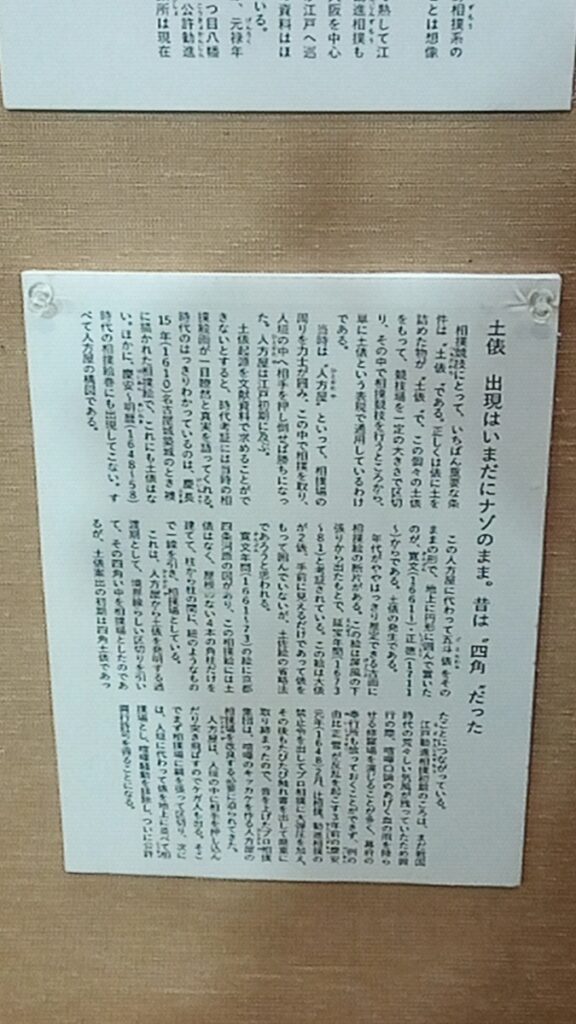 相撲系の
とは想像
熱して江
進相撲も
阪を中心
江戸へ巡
資料はほ
いる。
、元禄年
つ目八幡
公許勧進
所は現在
土俵 出現はいまだにナゾのまま。昔は“四角”だった
相撲競技にとって、いちばん重要な条
件は“土俵”である。正しくは俵に土を
詰めた物が“土俵”で、この個々の土俵
をもって、競技場を一定の大きさで区切
り、その中で相撲競技を行うところから、
単に土俵という表現で通用しているわけ
である。
当時は“人方屋”といって、相撲場の
周りを力士が囲み、この中で相撲を取り、
人垣の中へ相手を押し倒せば勝ちになっ
た。人方屋は江戸初期に及ぶ。
土俵起源を文献資料で求めることがで
きないとすると、時代考証には当時の相
撲絵画が一目瞭然と真実を語ってくれる。
時代のはっきりわかっているのは、慶長
15年(1610)名古屋城築城のとき襖
に描かれた相撲絵で、これにも土俵はな
い。ほかに、慶安〜明暦(1648〜58)
時代の相撲絵巻にも出現してこない。す
べて人方屋の構図である。
この人方屋に代わって五斗俵をその
ままの形で、地上に円形に囲んで置いた
のが、寛文(1661)〜正徳(1711
〜)からである。土俵の発生である。
年代がややはっきり推定できる古画に
相撲絵の断片がある。この絵は屏風の下
張りから出たもので、延宝年間(1673
〜81)と考証されている。この絵は大俵
が2俵、手前に見えるだけであって俵を
もって囲んでいないが、土佐絵の省略法
であろうと思われる。
寛文年間(1661〜73)の絵に京都
四条河原の図があり、この相撲絵には土
俵はなく、屋根のない4本の角柱だけを
建てて、柱から柱の間に、紐のようなもの
で一線を引き、相撲場としている。
これは、人方屋から土俵を発明する過
渡期として、境界線らしい区切りを引い
て、その四角い中を相撲場としたのであ
るが、土俵案出の初期は四角土俵であっ
たことにつながっている。
江戸勧進相撲初期のころは、まだ戦国
時代の荒々しい気風が残っていたため興
行の間、喧嘩口論のあげく血の雨を降ら
せる修羅場を演じることが多く、幕府の
奉行所も放っておくことができず、例の
由比正雪が反乱を起こす3年前の慶安
元年(1648)2月、辻相撲、勧進相撲の
禁止令を出してプロ相撲に大弾圧を加え、
その後もたびたび触れ書を出して厳重に
取り締まったので、音を上げたプロ相撲
集団は、喧嘩のキッカケを作る人方屋の
相撲場を改良する必要に迫られてきた。
人方屋は、人垣の中に相手を押し込ん
だり突き飛ばすのでケガ人も出る。そこ
でまず相撲場に縄を張って区切り、次に
は、人垣に代わって俵を地上に並べて相
撲場とし、喧嘩騒動を排除し、ついに公許
興行許可を得ることになる。